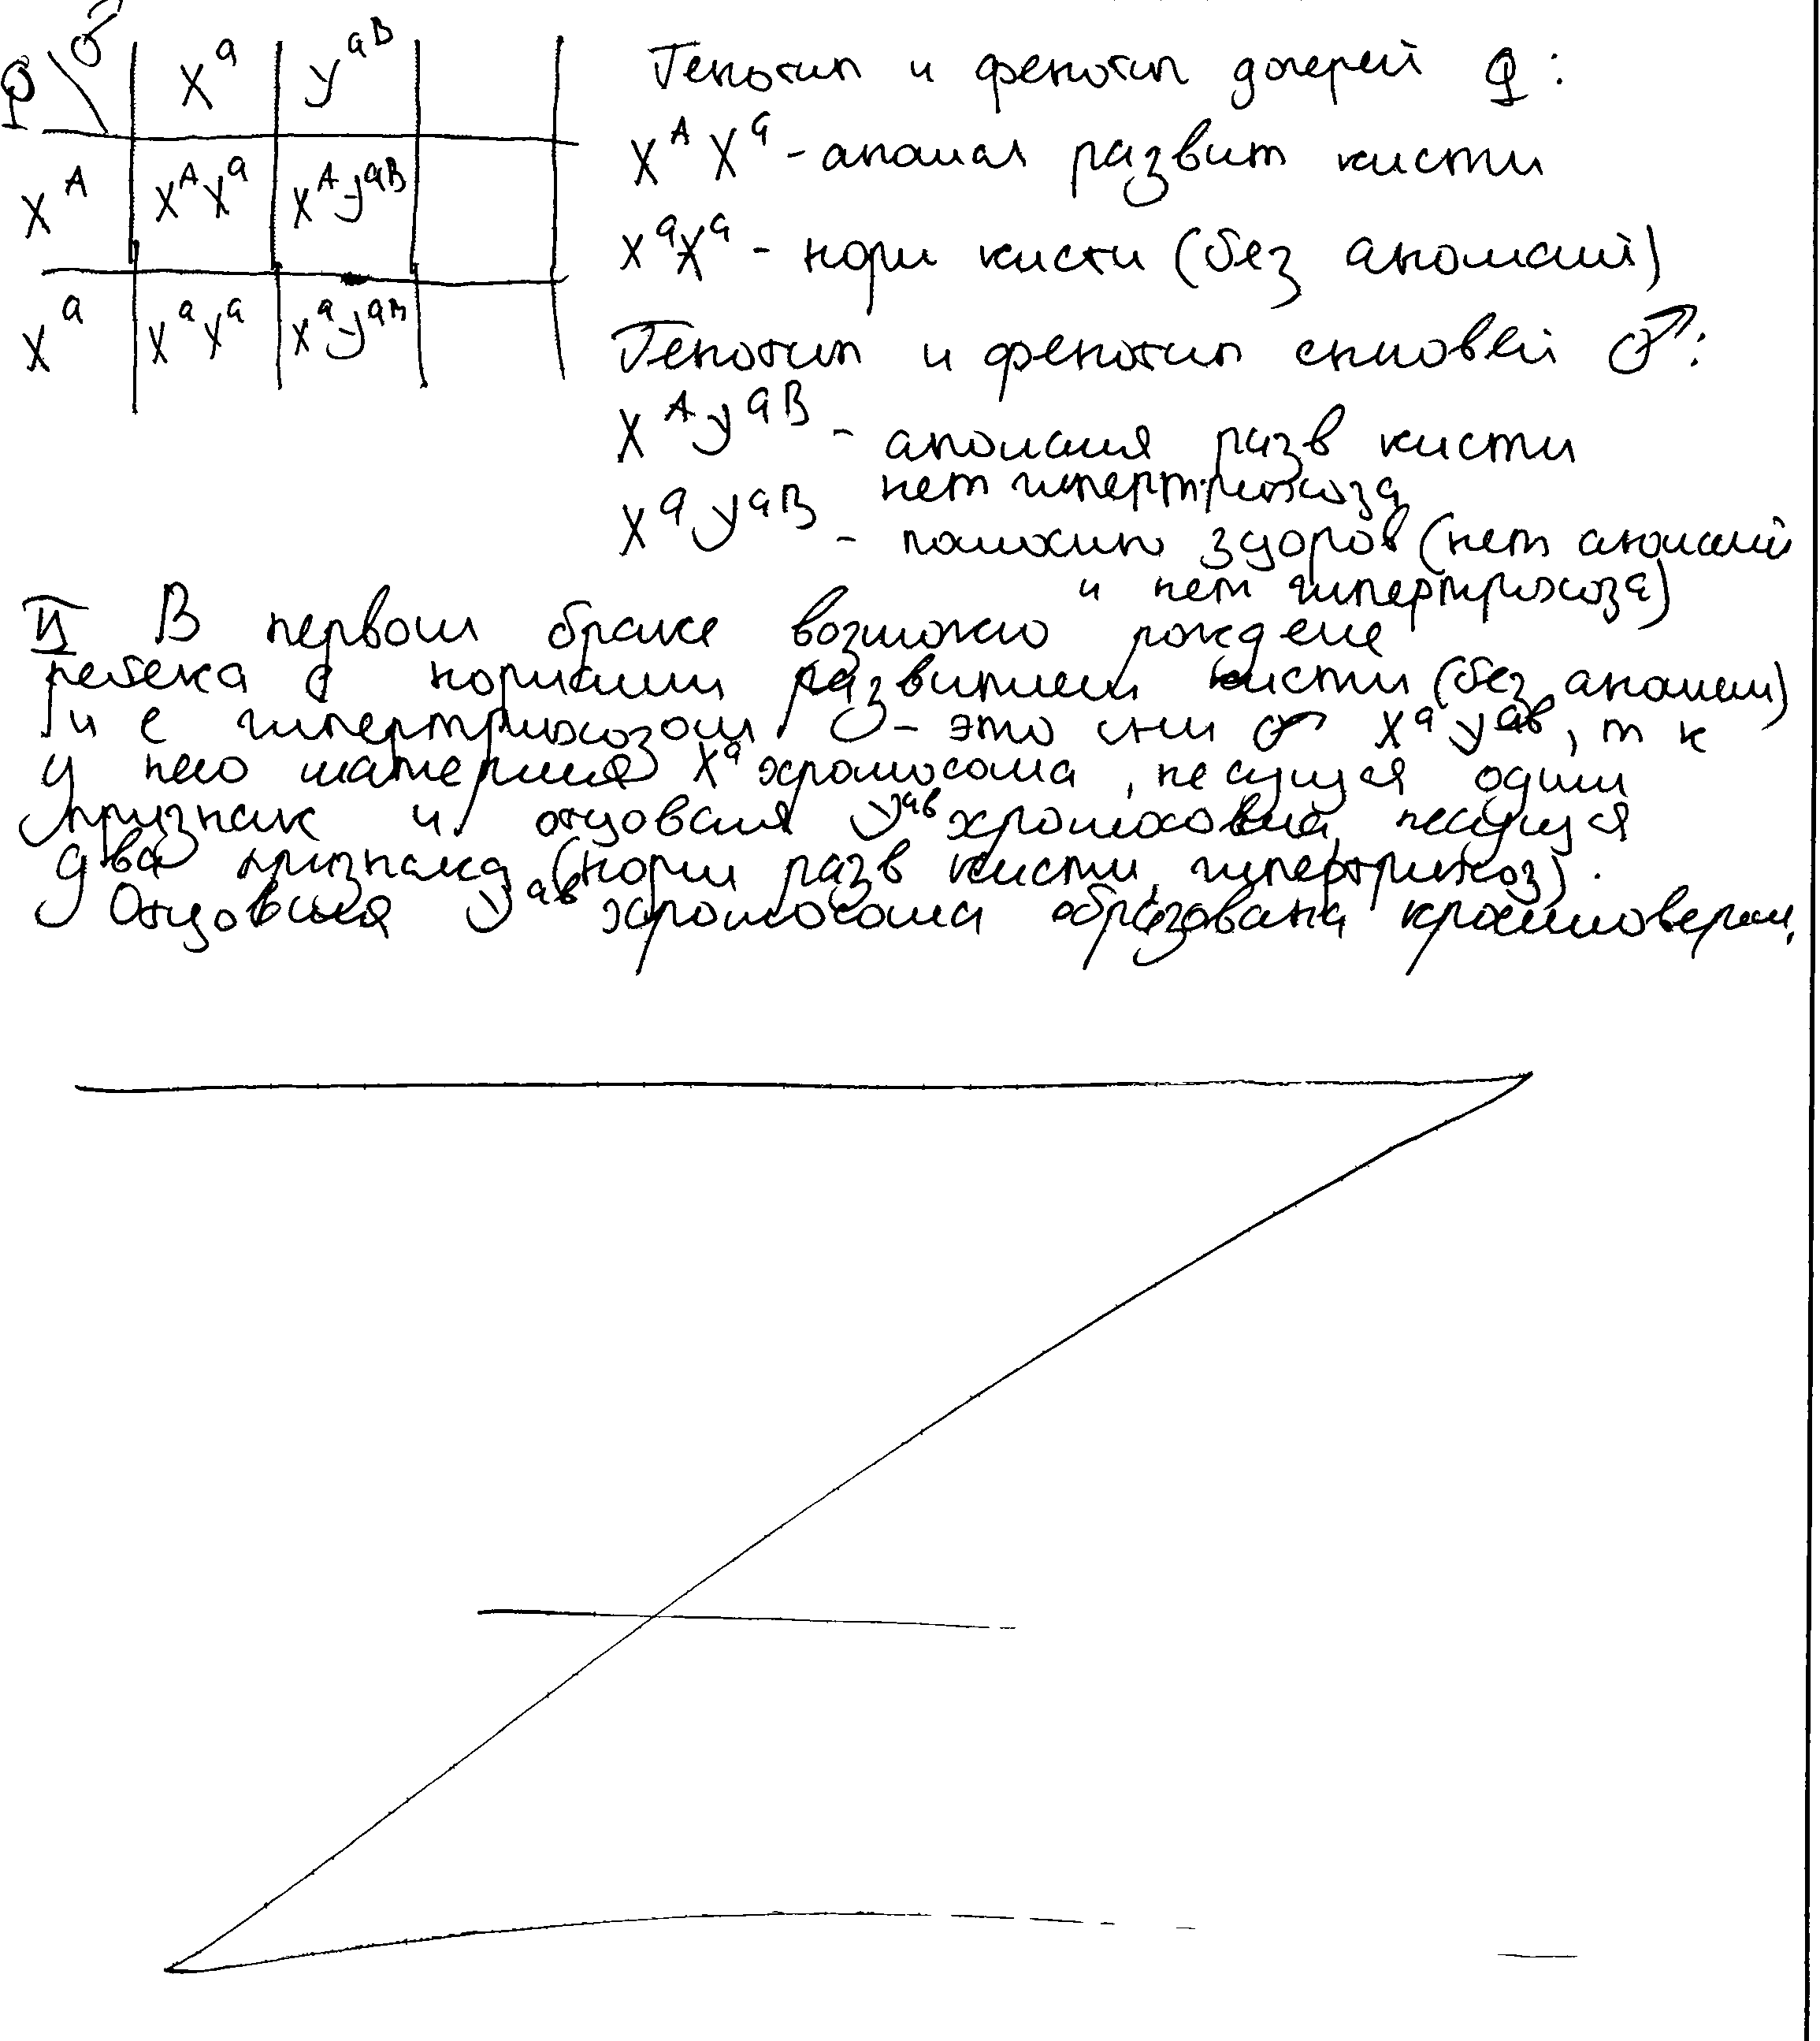 ♀\♂ X^a Y^aB
X^A X^A X^a X^A Y^aB
X^a X^a X^a X^a Y^aB
Генотип и фенотип дочерей ♀:
X^A X^a - аномал развит кисти
X^a X^a - норм кисти (без аномалий)
Генотип и фенотип сыновей ♂:
X^A Y^aB - аномалия разв кисти
нет гипертрихоза
X^a Y^aB - полностью здоров (нет аномалий
и нет гипертрихоза)
II В первом браке возможно рождение
ребенка с нормальным развитием кисти (без аномалий)
и с гипертрихозом - это сын ♂ X^a Y^ab, т к
у него материнская X^a хромосома, несущая один
признак и отцовская Y^ab хромосома, несущая
два признака (норм разв кисти, гипертрихоз).
Отцовская Y^ab хромосома образована кроссинговером.